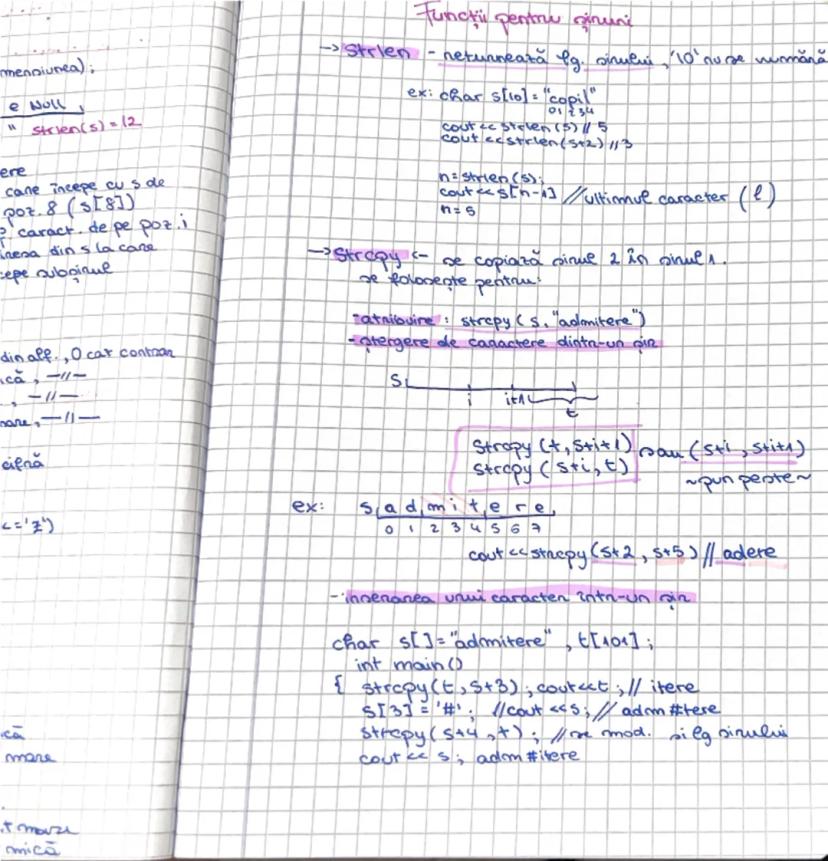 mensiunea);
e Null,
" strlen(s) = 12
ere
care începe cu s de
poz. 8 (s[8])
caract. de pe poz. i
din s la care
epe subșirul
din alf., 0 caz contrar
că, —//—
, —//—
mare, —//—
cifră
<='z')
că
mare
mică
Funcții pentru șiruri
→ strlen - returnează lg. șirului, '\0' nu se numără
ex: char s[10] = "copil"
0 1 2 3 4
cout << strlen(s) // 5
cout << strlen(s+2) // 3
n = strlen(s);
cout << s[n-1] // ultimul caracter (l)
n = 5
→ strcpy <- se copiază șirul 2 în șirul 1.
se folosește pentru:
- atribuire : strcpy(s, "admitere")
- ștergere de caractere dintr-un șir
s
i i+1
t
strcpy (t, s+i+1) sau (s+i, s+i+1)
strcpy (s+i, t) ~pun peste~
ex: s a d m i t e r e
0 1 2 3 4 5 6 7
cout << strcpy(s+2, s+5) // adere
- inserarea unui caracter într-un șir
char s[] = "admitere", t[101];
int main()
{ strcpy(t, s+3); cout<<t; // itere
s[3] = '#'; // cout << s; // adm#tere
strcpy(s+4, t); // se mod. și lg șirului
cout << s; adm#itere